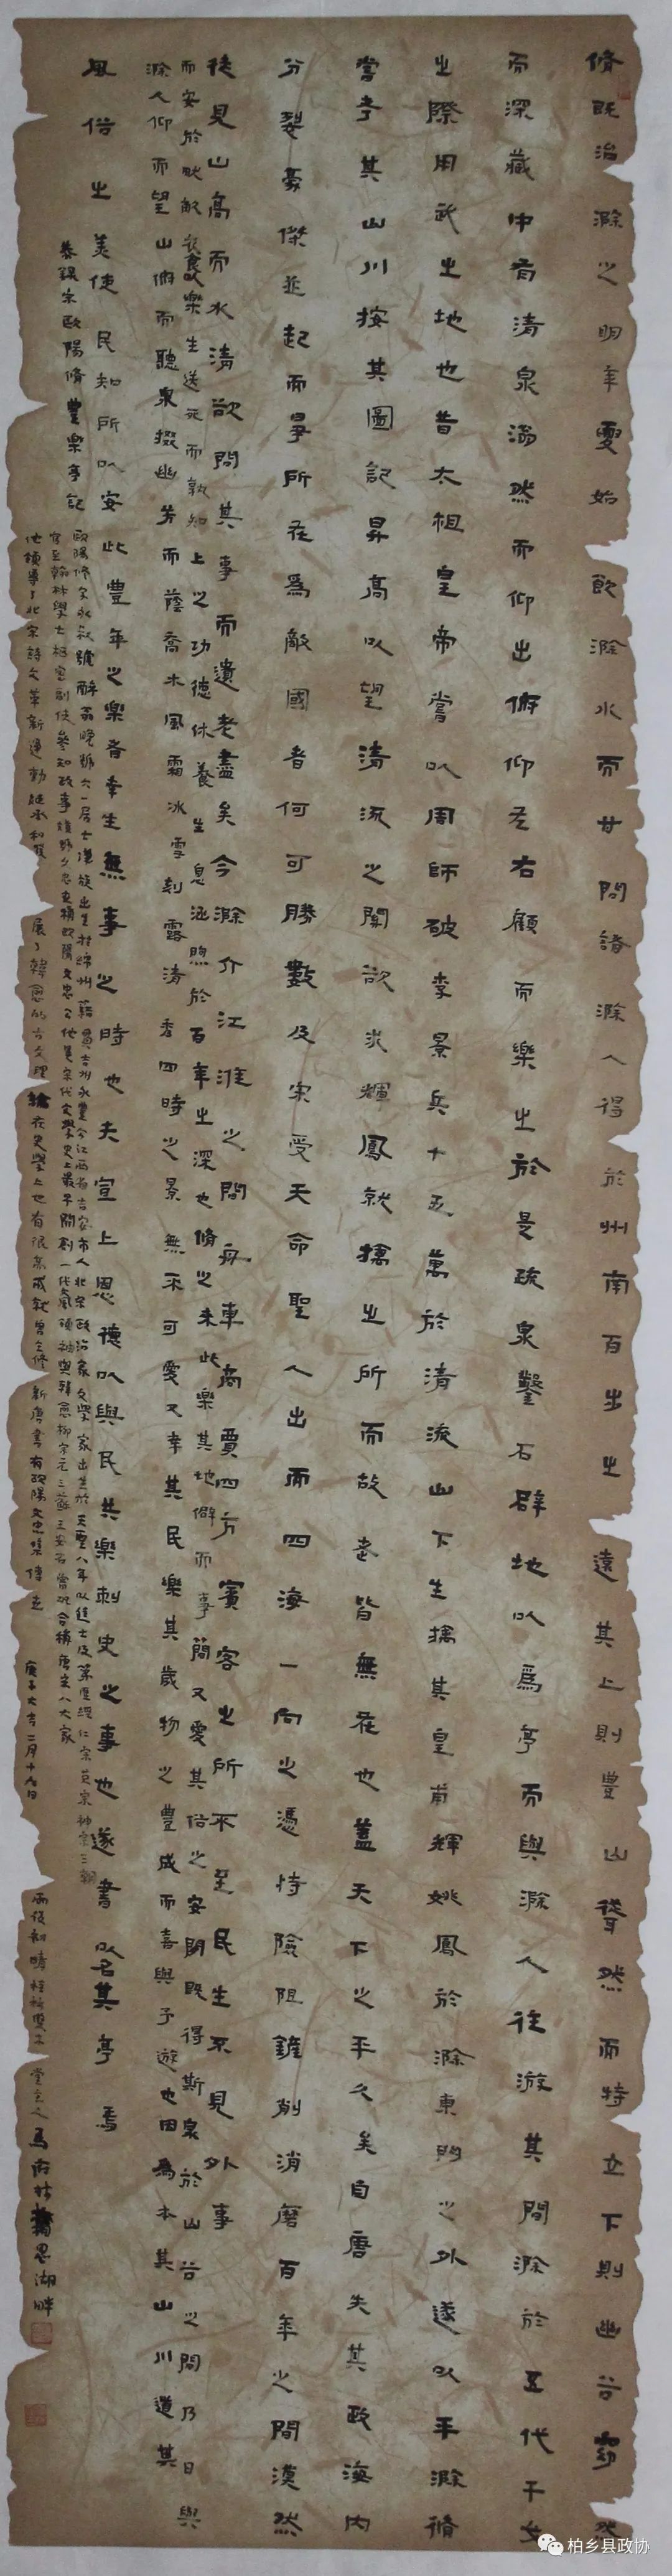 脩既治滁之明年夏始飲滁水而甘問諸滁人得於州南百步之遠其上則豐山聳然而特立下則幽谷窈然
而深藏中有清泉滃然而仰出俯仰左右顧而樂之於是疏泉鑿石辟地以為亭而與滁人往游其間滁於五代干戈
之際用武之地也昔太祖皇帝嘗以周師破李景兵十五萬於清流山下生擒其皇甫輝姚鳳於滁東門之外遂以平滁脩
嘗考其山川按其圖記昇高以望清流之關欲求輝鳳就擒之所而故老皆無在也蓋天下之平久矣自唐失其政海內
分裂豪傑並起而爭所在為敵國者何可勝數及宋受天命聖人出而四海一向之憑恃險阻鏟削消磨百年之間漠然
徒見山高而水清欲問其事而遺老盡矣今滁介江淮之間舟車商賈四方賓客之所不至民生不見外事
而安於畎畝衣食以樂生送死而孰知上之功德休養生息涵煦於百年之深也脩之來此樂其地僻而事簡又愛其俗之安閒既得斯泉於山谷之間乃日與
滁人仰而望山俯而聽泉掇幽芳而蔭喬木風霜冰雪刻露清秀四時之景無不可愛又幸其民樂其歲物之豐成而喜與予遊也因為本其山川道其
風俗之美使民知所以安此豐年之樂者幸生無事之時也夫宣上恩德以與民共樂刺史之事也遂書以名其亭焉
恭錄宋歐陽脩豐樂亭記
歐陽修字永叔號醉翁晚號六一居士漢族出生於綿州籍貫吉州永豐今江西省吉安市人北宋政治家文學家出生於天聖八年以進士及第歷經仁宗英宗神宗三朝
官至翰林學士樞密副使參知政事諡號文忠史稱歐陽文忠公他是宋代文學史上最早開創一代文風領袖與韓愈柳宗元三蘇王安石曾鞏合稱唐宋八大家
他領導了北宋詩文革新運動繼承和發展了韓愈的古文理論在史學上也有很高成就曾主修新唐書有歐陽文忠集傳世
庚子大吉二月十九日
雨後初晴
堂主人馬
墨湖畔
柏乡县政协